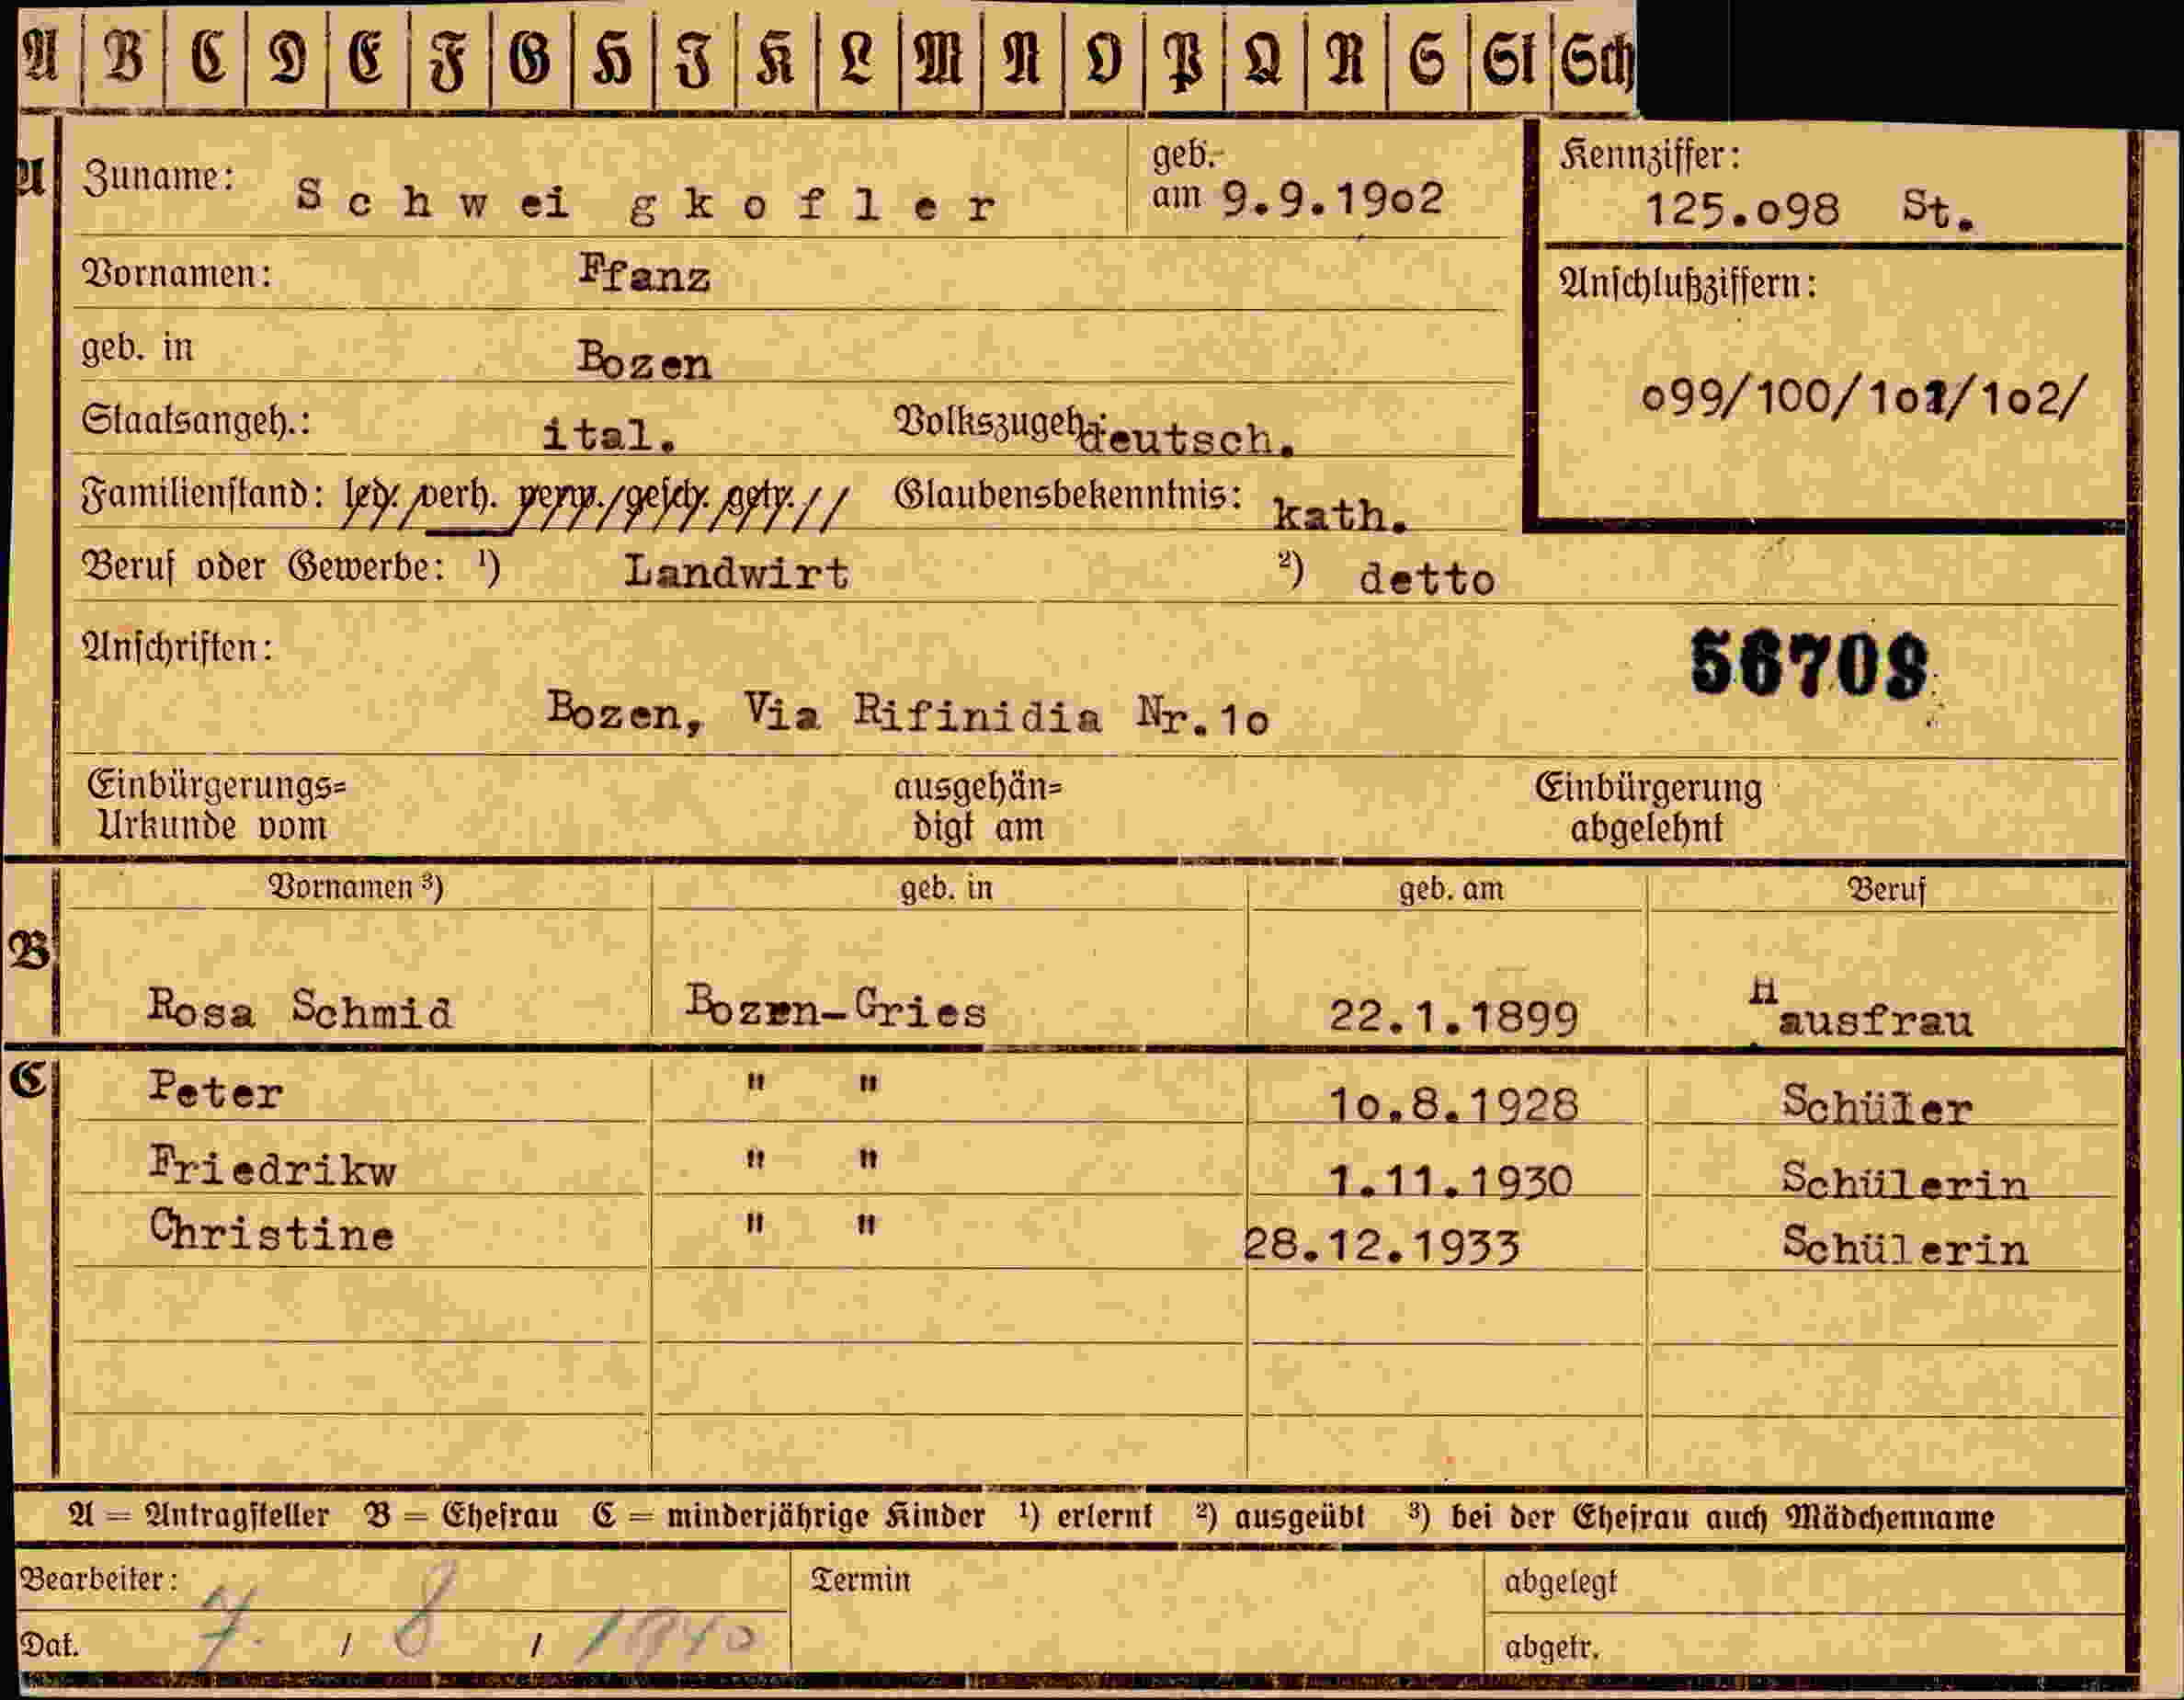 A B C D E F G H I K L M N O P Q R S St Sch
A Zuname: Schweigkofler geb. am 9.9.19o2 Kennziffer: 125.o98 St.
Vornamen: Ffanz Anschlußziffern:
geb. in Bozen o99/100/1o1/1o2/
Staatsangeh.: ital. Volkszugeh.: deutsch.
Familienstand: led. verh. verw. gesch. getr. // Glaubensbekenntnis: kath.
Beruf oder Gewerbe: ¹) Landwirt ²) detto
Anschriften: 56709
Bozen, Via Rifinidia Nr.1o
Einbürgerungs= ausgehän= Einbürgerung
Urkunde vom digt am abgelehnt
Vornamen ³) geb. in geb. am Beruf
B
Rosa Schmid Bozen-Gries 22.1.1899 Hausfrau
C Peter " " 1o.8.1928 Schüler
Friedrikw " " 1.11.1930 Schülerin
Christine " " 28.12.1933 Schülerin
A = Antragsteller B = Ehefrau C = minderjährige Kinder ¹) erlernt ²) ausgeübt ³) bei der Ehefrau auch Mädchenname
Bearbeiter: Termin abgelegt
Dat. 7. / 8 / 1940 abgetr.